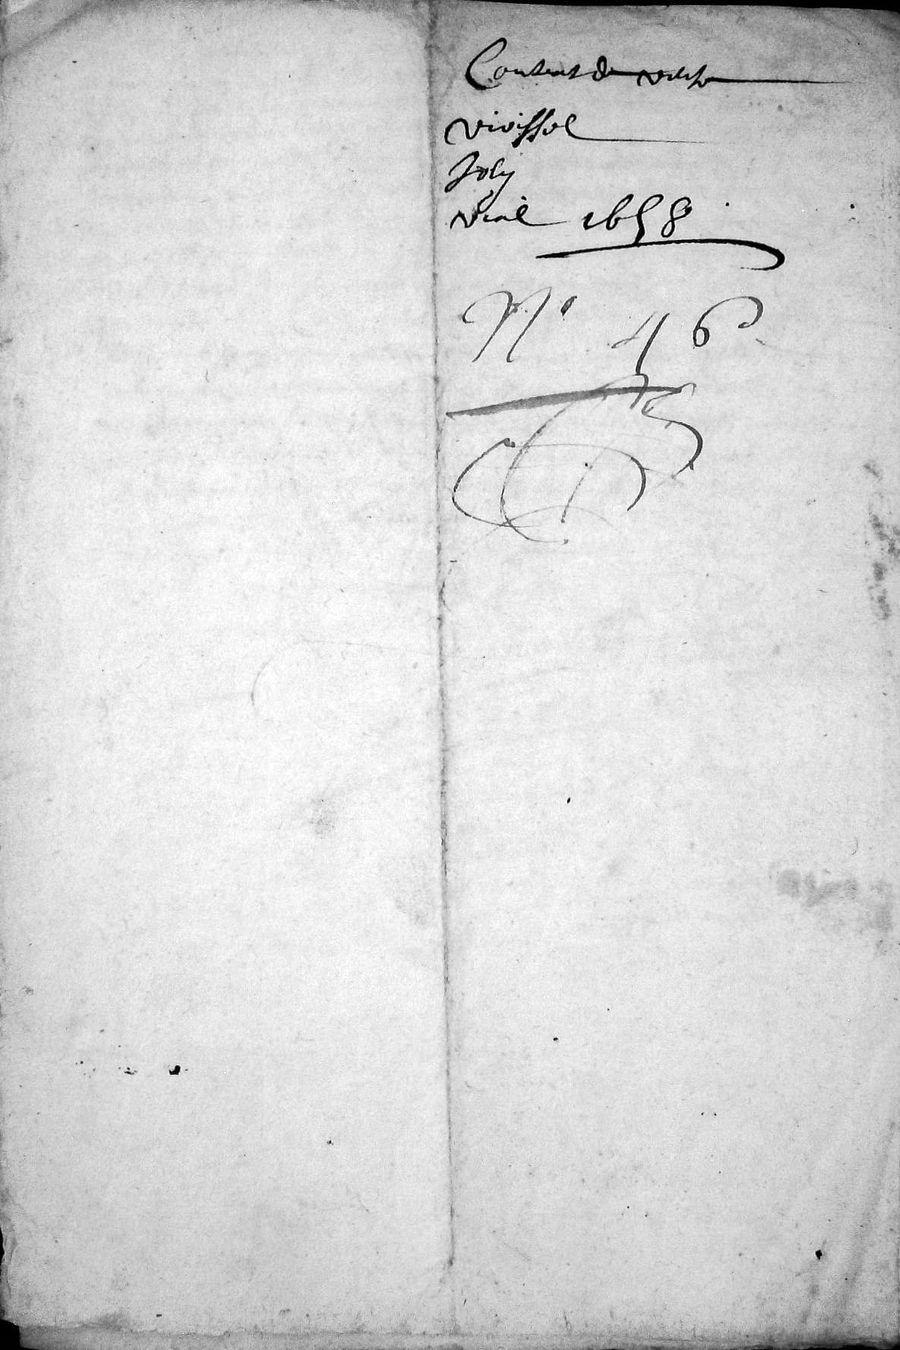 Contrat de
Vivissol
Joly
Vial 1658
N° 46